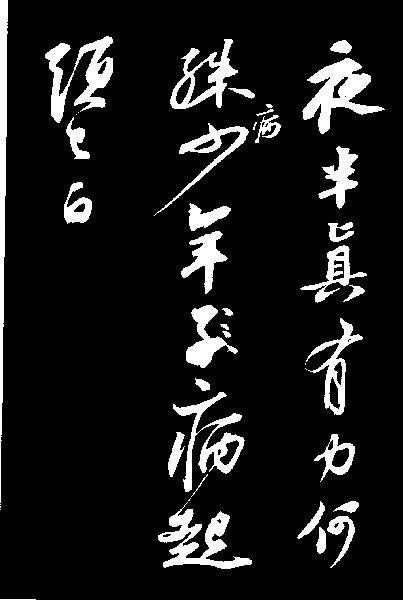 夜半眞有力何
殊病少年子病起
頭已白